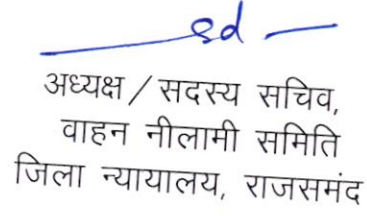 sd —
अध्यक्ष / सदस्य सचिव,
वाहन नीलामी समिति
जिला न्यायालय, राजसमंद